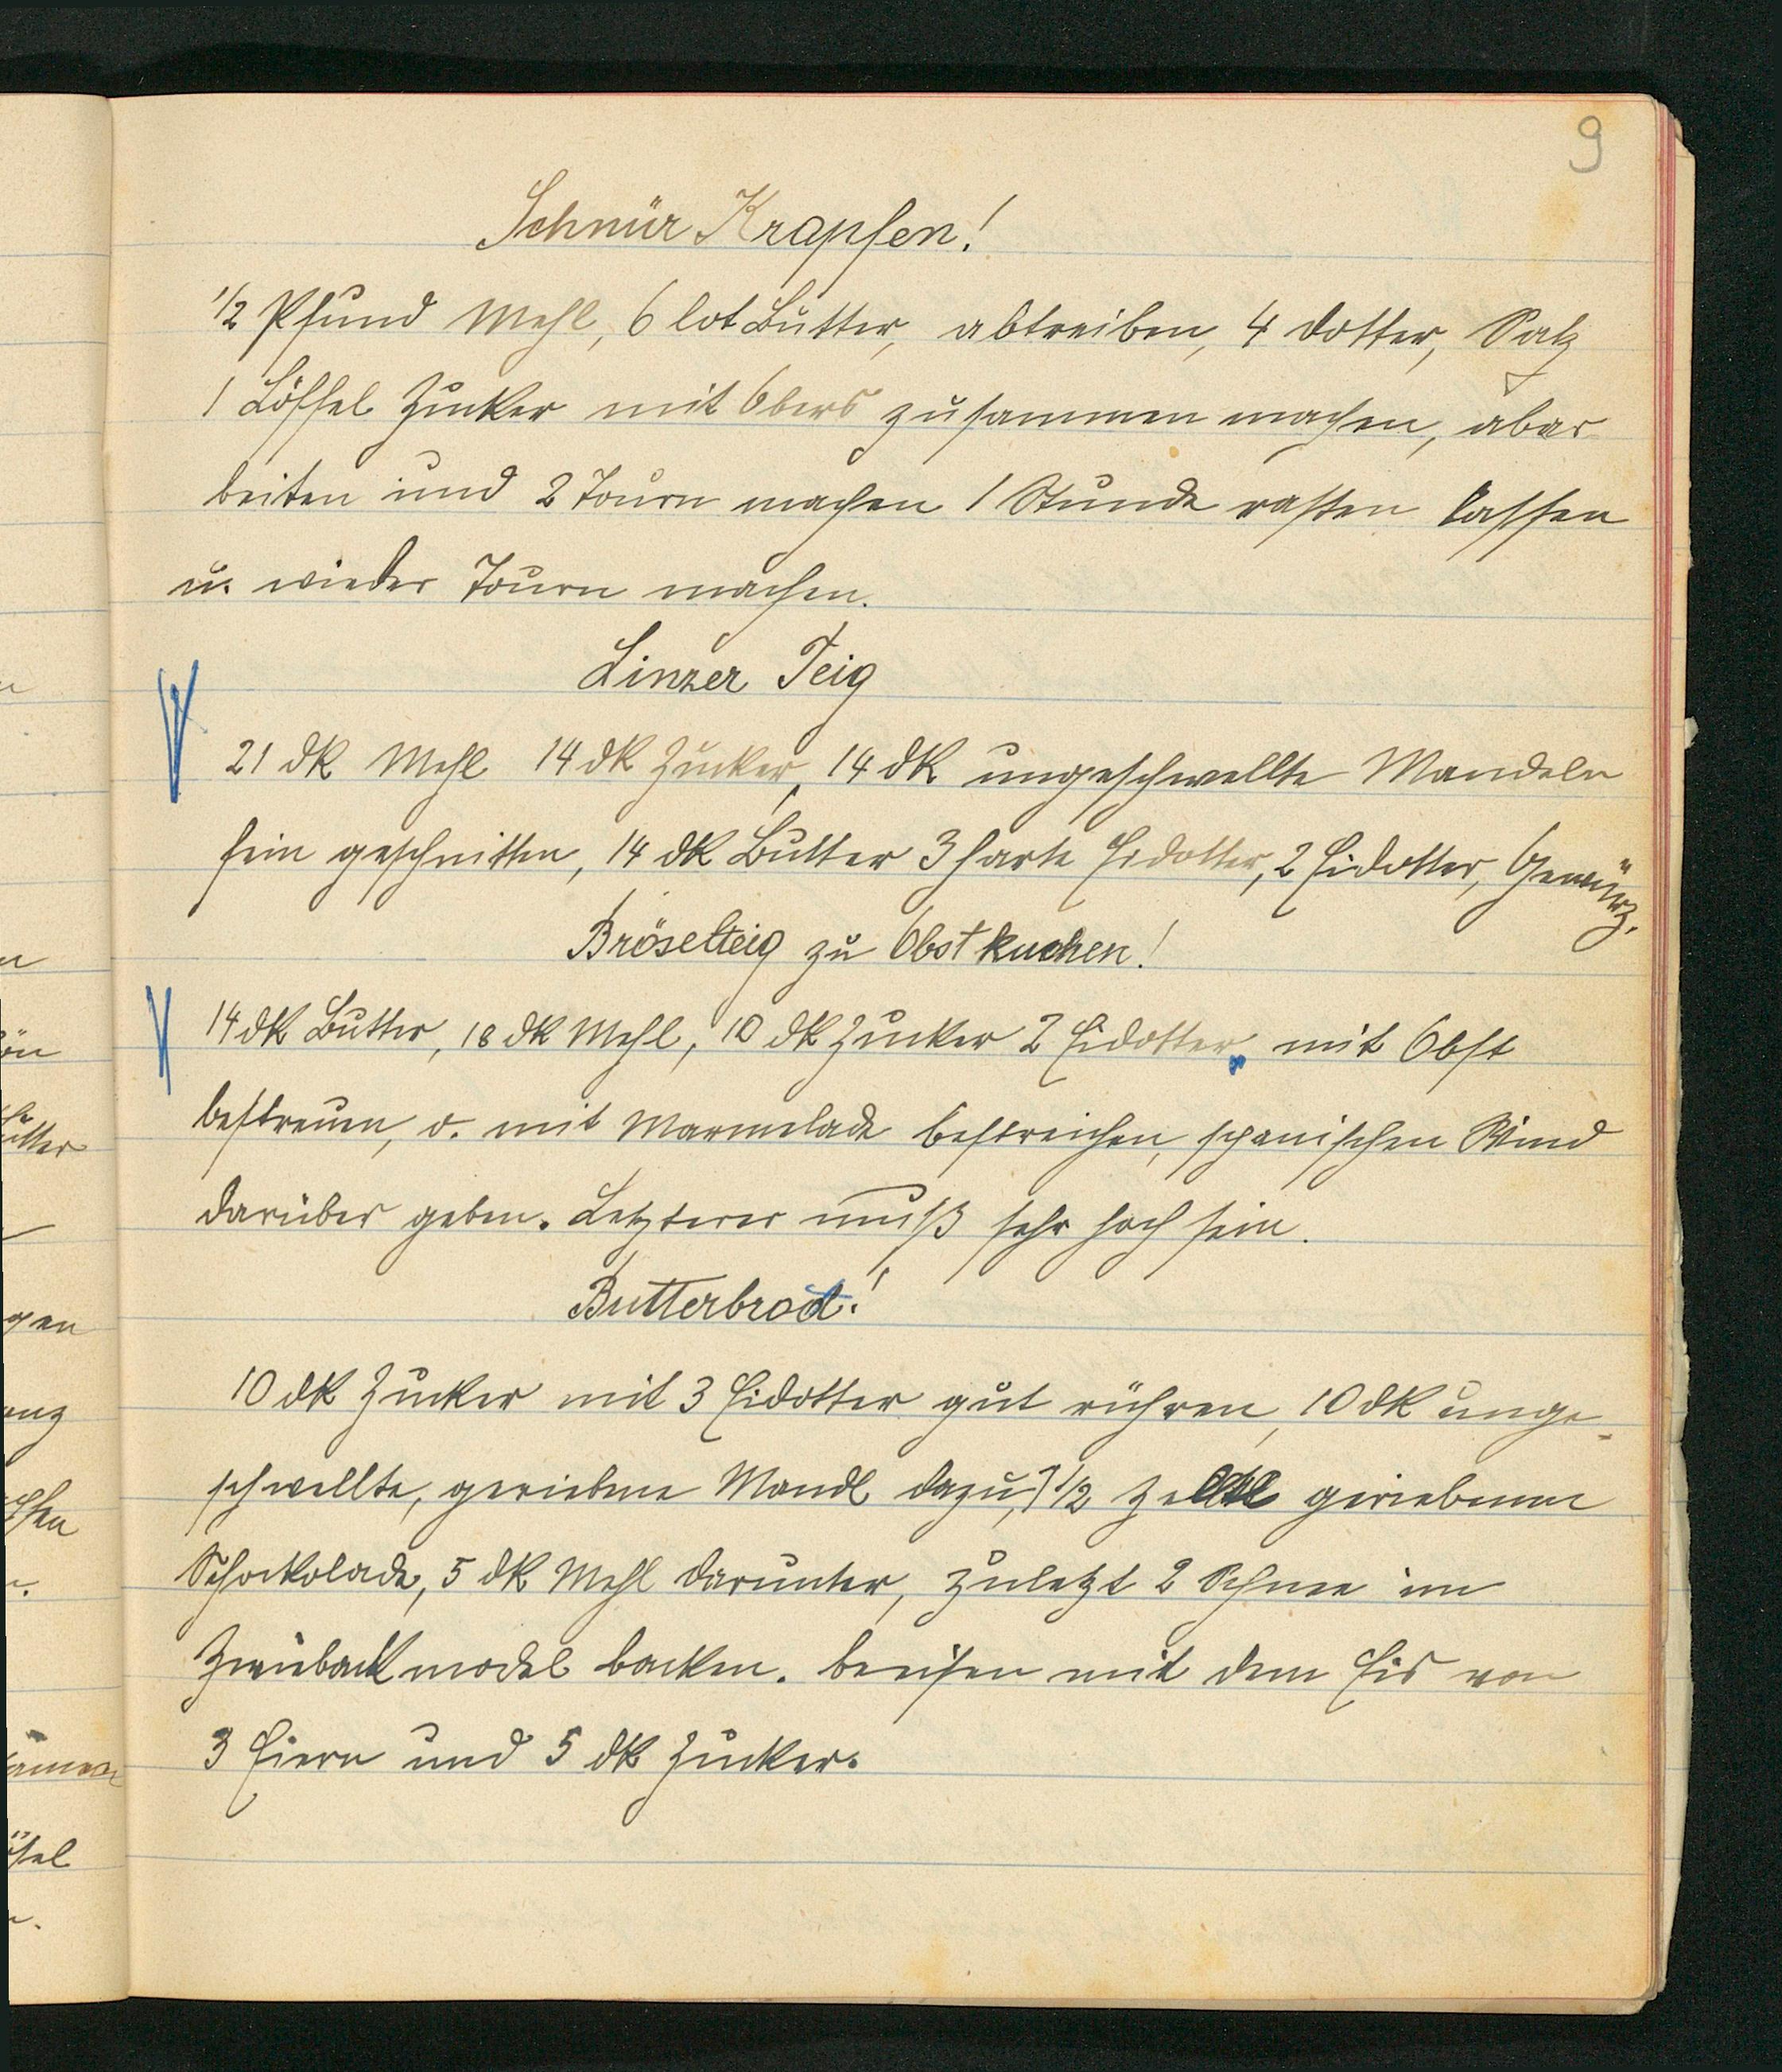 9
Schnür Krapfen!
1/2 Pfund Mehl, 6 lot Butter, abtreiben, 4 Dotter, Salz
1 Löffel Zucker mit Obers zusammen machen, abar-
beiten und 2 Tourn machen 1 Stunde rasten lassen
u. wieder Tourn machen.
Linzer Teig
21 dk Mehl 14 dk Zucker, 14 dk ungeschwellte Mandeln
fein geschnitten, 14 dk Butter 3 harte Eidotter, 2 Eidotter, Gewürz.
Bröselteig zu Obstkuchen!
14 dk Butter, 18 dk Mehl, 10 dk Zucker 2 Eidotter, mit Obst
bestreuen, o. mit Marmelade bestreichen, spanischen Wind
darüber geben. Letzterer muß sehr hoch sein.
Butterbrot!
10 dk Zucker mit 3 Eidotter gut rühren, 10 dk unge-
schwellte, geriebene Mandl dazu, 1/2 geriebenen
Schockolade, 5 dk Mehl darunter, zuletzt 2 Schnee im
Zwieback model backen. beeisen mit dem Eis von
3 Eiern und 5 dk Zucker.